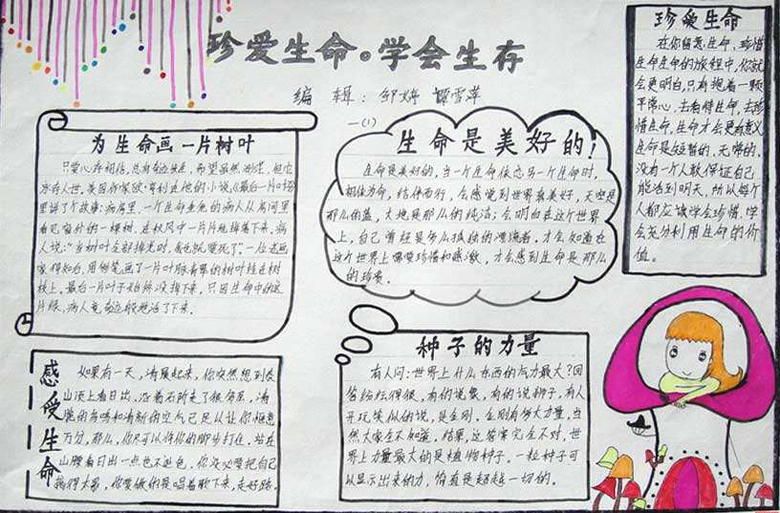 珍爱生命。学会生存
编 辑：邹婷 谭雪萍
一(1)
为生命画一片树叶
只要心存相信，总有奇迹发生，希望虽然渺茫，但它
永存人世。美国作家欧·亨利在他的小说《最后一片叶子》
里讲了个故事：病房里，一个生命垂危的病人从房间里
看见窗外的一棵树，在秋风中一片片地掉落下来。病
人说："当树叶全部掉光时，我也就要死了。"一位老画
家得知后，用彩笔画了一片叶脉青翠的树叶挂在树
枝上。最后一片叶子始终没掉下来。只因生命中的这
片绿，病人竟奇迹般地活了下来。
生命是美好的！
生命是美好的，当一个生命依恋另一个生命时，
相依为命，结伴而行，会感觉到世界真美好，天空是
那么的蓝，大地是那么的纯洁；会明白在这个世界
上，自己曾经是多么孤独的漂流者，才会知道在
这个世界上哪里珍惜和感激，才会感到生命是那么
的珍贵。
珍爱生命
在你留意生命，珍惜
生命生命的旅程中，你就
会更明白，只有抱着一颗
平常心，去看待生命，去珍
惜生命，生命才会更有意义
生命是短暂的，无常的，
没有一个人敢保证自己
能活到明天，所以每个
人都应该学会珍惜，学
会充分利用生命的价
值。
感受生命
如果有一天，清晨起来，你突然想到泰
山顶上看日出，沿着石阶走了很多里，清
脆的鸟鸣和清新的空气已足以让你惬意
万分，那么，你尽可以将你的脚步打住，站在
山腰看日出一点也不逊色，你没必要把自己
搞得太累，你要做的是唱着歌下来，走好路。
种子的力量
有人问：世界上什么东西的气力最大？回
答纷纭得很，有的说象，有的说狮子，有人
开玩笑似的说，是金刚，金刚有多大力量，当
然大家全不知道。结果，这答案完全不对，世
界上力量最大的是植物种子。一粒种子可
以显示出来的力，简直是超越一切的。